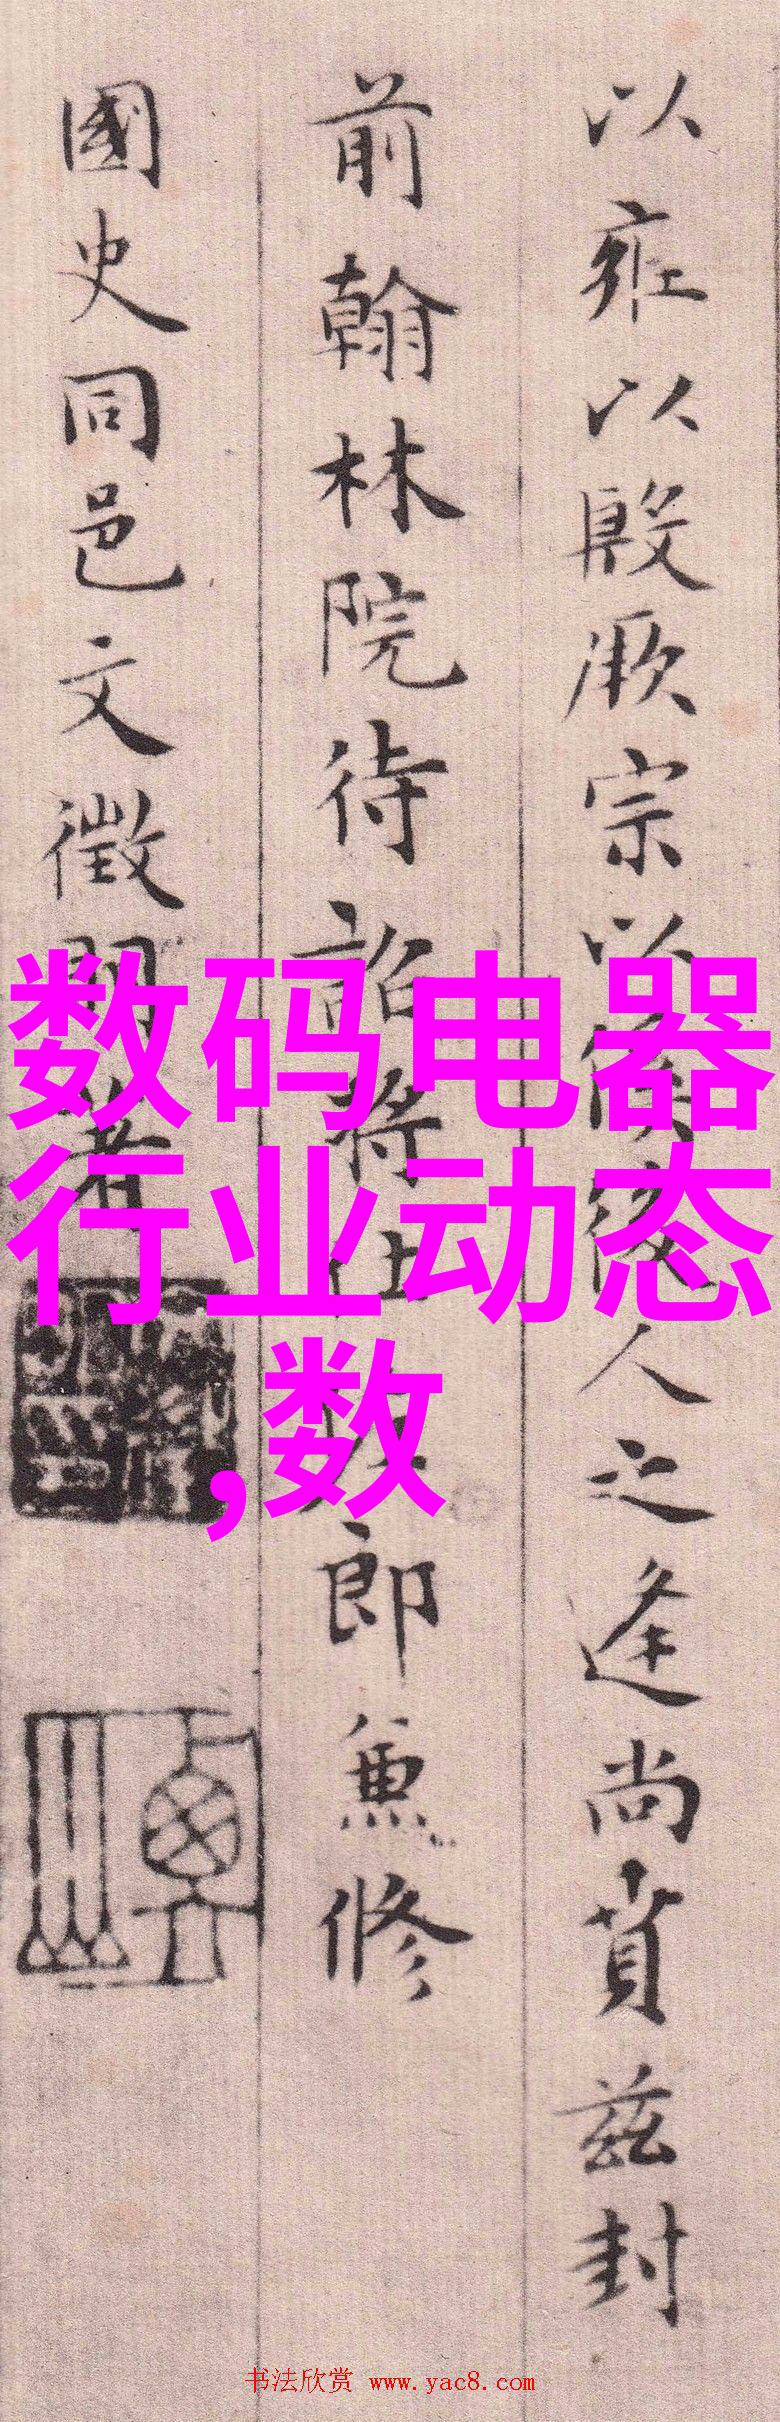 以雍以殷厥宗以後人之逢尚賁茲封
前翰林院待詔將仕郎兼修
國史同邑文徵明著
数码电器
行业动态
,数
书法欣赏 www.yac8.com